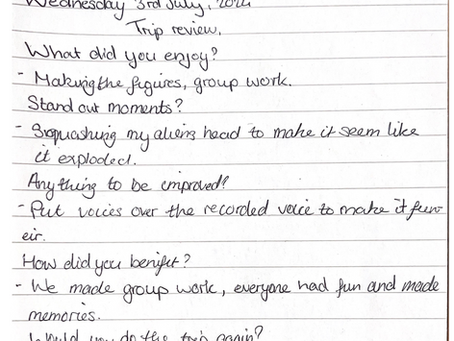 Wednesday 3rd July, 2024
Trip review.
What did you enjoy?
- Making the figures, group work.
Stand out moments?
- Sqquashing my aliens head to make it seem like
it exploded.
Any thing to be improved?
- Put voices over the recorded voice to make it funn
eir.
How did you benifit?
- We made group work, everyone had fun and made
memories.
Would you do the trip again?